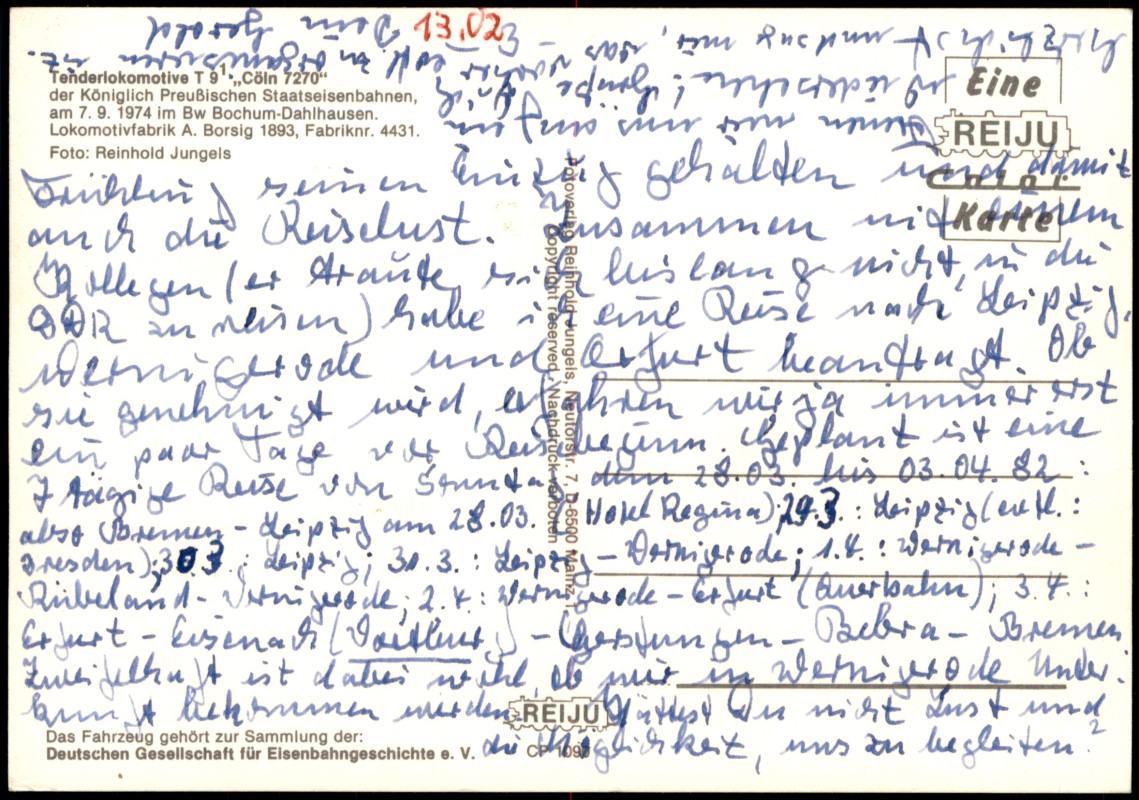 Tenderlokomotive T 9¹ • „Cöln 7270“
der Königlich Preußischen Staatseisenbahnen,
am 7. 9. 1974 im Bw Bochum-Dahlhausen.
Lokomotivfabrik A. Borsig 1893, Fabriknr. 4431.
Foto: Reinhold Jungels
Eine
REIJU
Color
Karte
Frühling seinen Einzug gehalten und damit
auch die Reiselust. Zusammen mit
Kollegen (er traute sich bislang nicht, in die
DDR zu reisen) habe ich eine Reise nach Leipzig,
Wernigerode und Erfurt beantragt. Ob
sie genehmigt wird, erfahren wir ja immer erst
ein paar Tage vor Reisebeginn. Geplant ist eine
7 tägige Reise von Sonntag, dem 28.03. bis 03.04.82:
also Bremen - Leipzig am 28.03. Hotel Regina); 29.3.: Leipzig (evtl.:
Dresden); 30.3.: Leipzig; 31.3.: Leipzig - Wernigerode; 1.4.: Wernigerode -
Rübeland - Wernigerode; 2.4.: Wernigerode - Erfurt (Querbahn); 3.4.:
Erfurt - Eisenach ( ) - Gerstungen - Bebra - Bremen
Zweifelhaft ist dabei wohl, ob wir in Wernigerode Unter-
kunft bekommen werden. Hättest Du nicht Lust und
die Möglichkeit, uns zu begleiten?
können wir uns auf ein
Wiedersehen! Grüße Dich
was vorher noch zu organisieren ist.
herzlichst und sag mir,
- Dein Gerold
13.02
Fotoverlag Reinhold Jungels, Neutorstr. 7, D-6500 Mainz 1,
Copyright reserved, Nachdruck verboten
REIJU
CP 109
Das Fahrzeug gehört zur Sammlung der:
Deutschen Gesellschaft für Eisenbahngeschichte e. V.